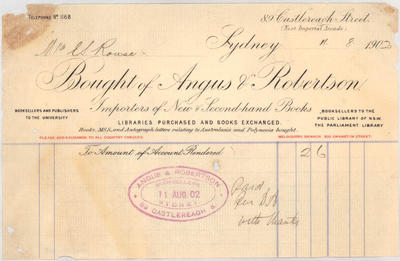 TELEPHONE No 1168
89 Castlereagh Street,
(Next Imperial Arcade)
Sydney 11 8 1902
Mrs
Bought of Angus & Robertson,
Importers of New & Second-hand Books
BOOKSELLERS AND PUBLISHERS
TO THE UNIVERSITY
BOOKSELLERS TO THE
PUBLIC LIBRARY OF N.S.W.
THE PARLIAMENT LIBRARY
LIBRARIES PURCHASED AND BOOKS EXCHANGED.
Books, MSS, and Autograph letters relating to Australasia and Polynesia bought.
MELBOURNE BRANCH
To Amount of Account Rendered 2 6
ANGUS & ROBERTSON
BOOKSELLERS
11 AUG. 02
SYDNEY
89 CASTLEREAGH S
Paid
with thanks